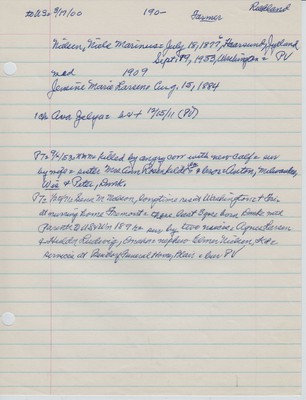 to US 3/17/00 190- Farmer Rudland
Nielsen, Niels Marinus = July 15, 1877, Jylland
Sept. 19, 1953, Washington = PV
md 1909
Jensine Marie Larsen Aug. 15, 1884
1 ch Ava Zelya = b + 12/15/11 (PV)
PT 9/4/53, NMN killed by angry cow with new calf = sur
by wife + sister Mrs. Ann + bro = Anton, Milwaukee,
Wis + Peter, Denmk.
M. Nielsen, longtime resid Washington +
at nursing home Fremont = born Denmk and
parents to USA in 1891 = sur by two nieces = Agnes Larsen
+ Hulda Ludwig, Omaha = nephew Elmer Nielsen,
service at Funeral Home, + bur PV